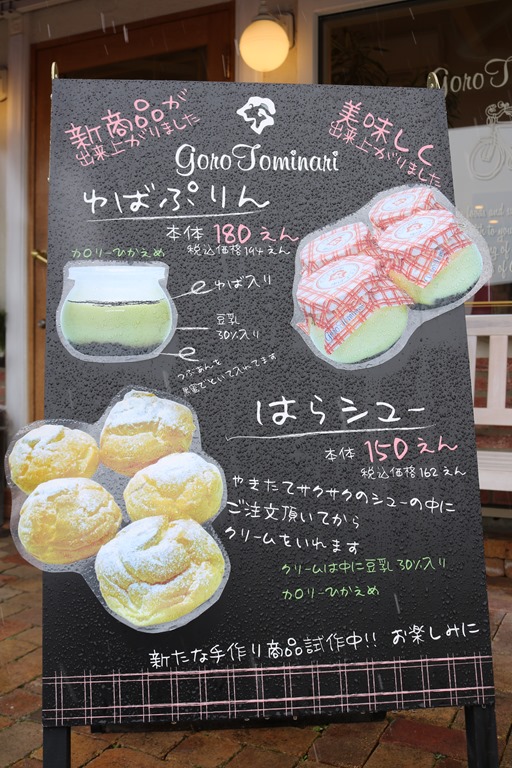 新商品が
出来上がりました
美味しく
出来上がりました
Goro Tominari
ゆばぷりん
本体 180えん
税込価格194えん
カロリーひかえめ
ゆば入り
豆乳
30%入り
つぶあんを
黒蜜でといて入れてます
はらシュー
本体 150えん
税込価格162えん
やきたてサクサクのシューの中に
ご注文頂いてから
クリームをいれます
クリームは中に豆乳30%入り
カロリーひかえめ
新たな手作り商品試作中!! お楽しみに
Goro T